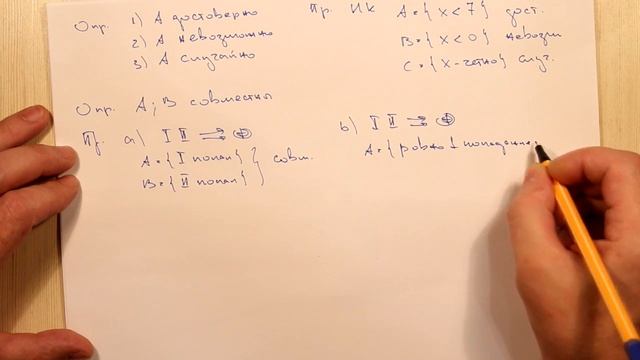 Опр. 1) А достоверно
2) А невозможно
3) А случайно
Пр. ИК A={X<7} дост.
B={X<0} невозм
C={X-четно} случ.
Опр. A; B совместны
Пр. a) I II ⇉
A={I попал} совм.
B={II попал}
b) I II ⇉
A={ровно 1 попадание